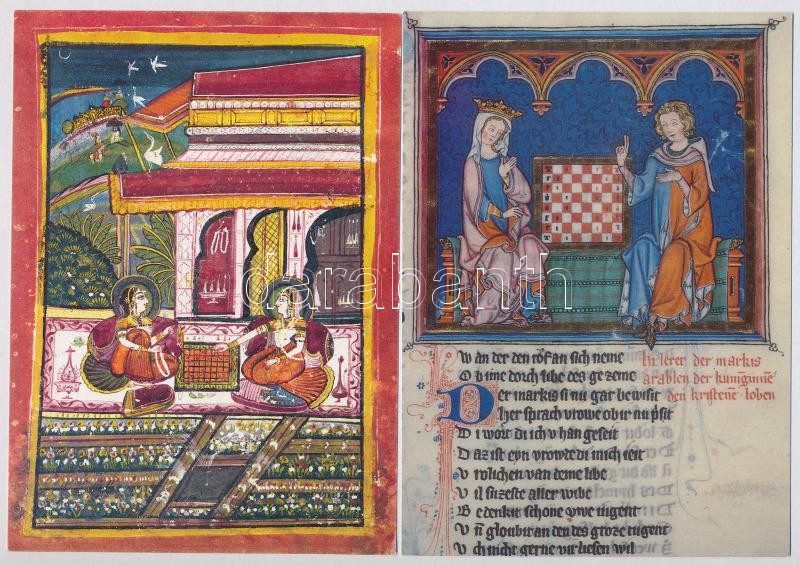 darabanth
Wan der den rof an sich neme
Ob ime dorch libe des gezeme
Der markis si nu gar bewisit
her sprach vrowe ob ir nu psit
Di wort di ich v han geseit
Daz ist eyn vrowede
Vrolichen van deme libe
Vil suzeste aller wibe
Bedenkit schone vwe tugent
Vn gloubit an den des groze tugent
Vch nicht gerne virliesen wil
hi leret der markis
arablen der kuniginne
den kristene loben